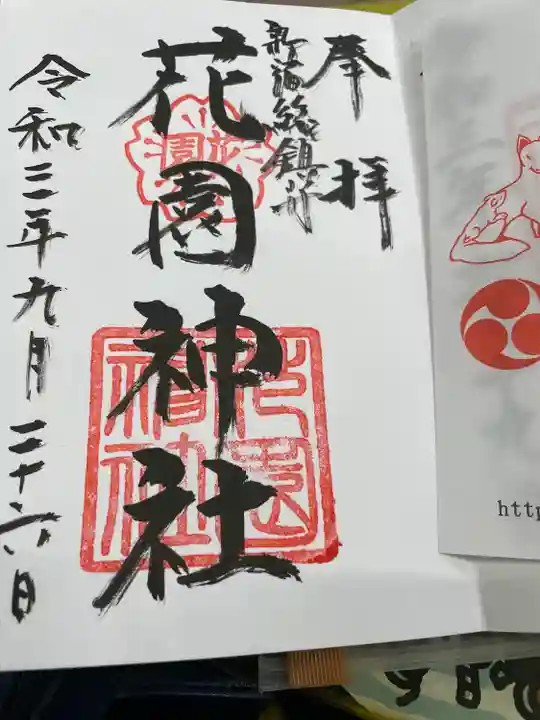 奉拝
新宿総鎮守
花園神社
令和三年九月二十六日
花園神社
http